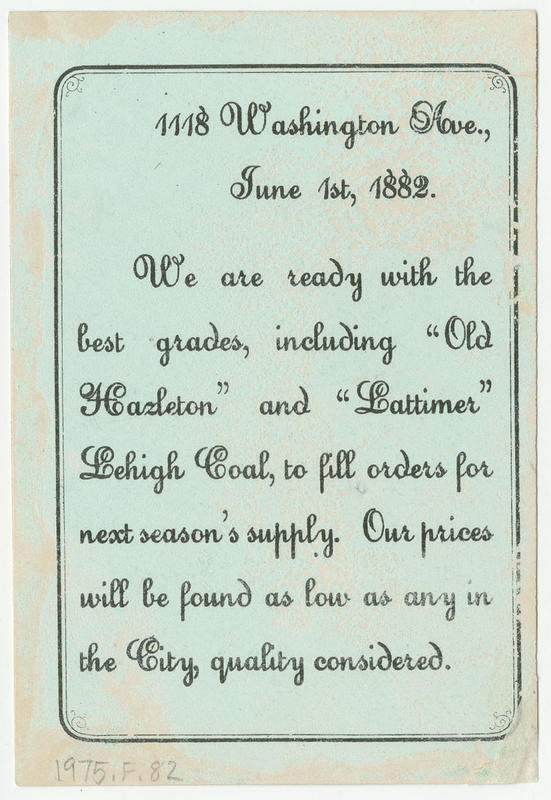 1118 Washington Ave.,
June 1st, 1882.
We are ready with the
best grades, including “Old
Hazleton” and “Lattimer”
Lehigh Coal, to fill orders for
next season’s supply. Our prices
will be found as low as any in
the City, quality considered.
1975.F.82